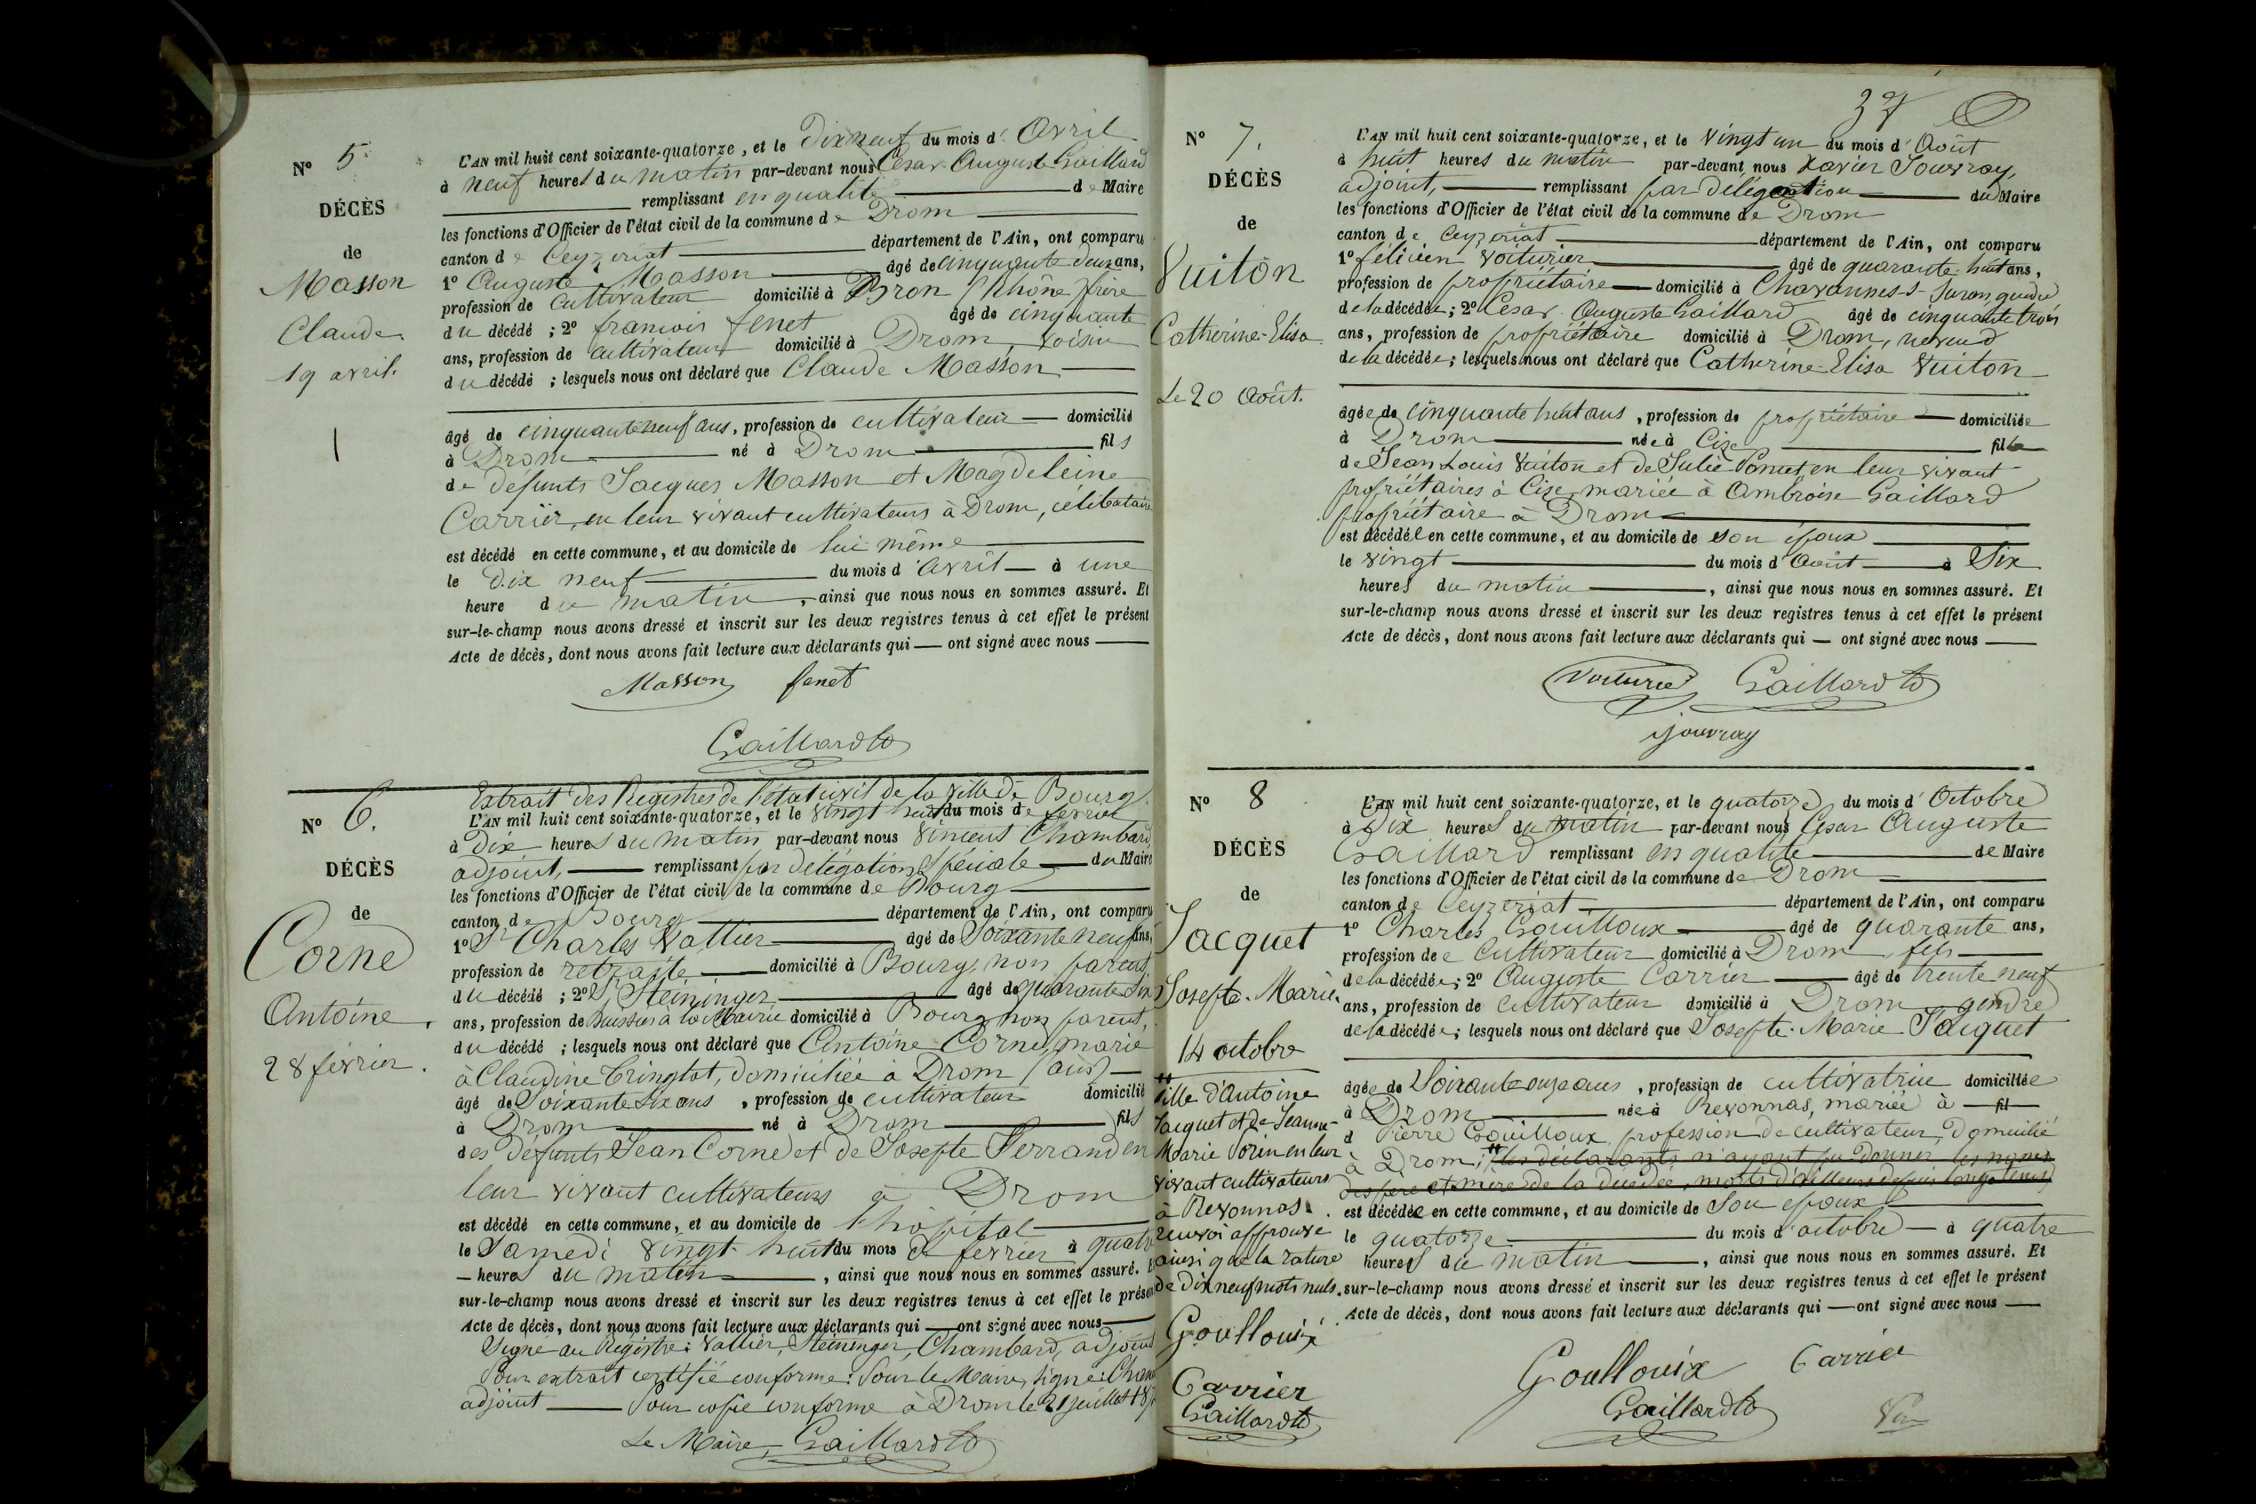 N° 5.
DÉCÈS
de
Masson
Claude
19 avril.
1
L'AN mil huit cent soixante-quatorze, et le Dix neuf du mois d'Avril
à neuf heures du matin par-devant nous Cesar Auguste Gaillard
remplissant en qualité de Maire
les fonctions d'Officier de l'état civil de la commune de Drom
canton de Ceyzeriat département de l'Ain, ont comparu
1° Auguste Masson âgé de cinquante deux ans,
profession de cultivateur domicilié à Bron (Rhône) frère
du décédé ; 2° francois fenet âgé de cinquante
ans, profession de cultivateur domicilié à Drom, voisin
du décédé ; lesquels nous ont déclaré que Claude Masson
âgé de cinquante neuf ans, profession de cultivateur domicilié
à Drom né à Drom fils
de défunts Jacques Masson et Magdeleine
Carrier, en leur vivant cultivateurs à Drom, célibataire
est décédé en cette commune, et au domicile de lui même
le dix neuf du mois d'avril à une
heure du matin, ainsi que nous nous en sommes assuré. Et
sur-le-champ nous avons dressé et inscrit sur les deux registres tenus à cet effet le présent
Acte de décès, dont nous avons fait lecture aux déclarants qui ont signé avec nous
Masson fenet
Gaillard
N° 6.
DÉCÈS
de
Corne
Antoine.
28 février.
Extrait des Registres de l'état civil de la ville de Bourg.
L'AN mil huit cent soixante-quatorze, et le vingt huit du mois de fevrier
à Dix heures du matin par-devant nous Vincent Chambard
adjoint, remplissant par délégation spéciale du Maire
les fonctions d'Officier de l'état civil de la commune de Bourg
canton de Bourg département de l'Ain, ont comparu
1° Sr Charles Vallier âgé de Soixante neuf ans,
profession de retraité domicilié à Bourg, non parent
du décédé ; 2° Sr Steininger âgé de quarante six
ans, profession de huissier à la Mairie domicilié à Bourg non parent,
du décédé ; lesquels nous ont déclaré que Antoine Corne, marié
à Claudine Tringlot, domiciliée à Drom (ain)
âgé de Soixante six ans, profession de cultivateur domicilié
à Drom né à Drom fils
des défunts Jean Corne et de Josepte Ferrand en
leur vivant cultivateurs à Drom
est décédé en cette commune, et au domicile de l'hôpital
le Samedi vingt huit du mois de fevrier à quatre
heures du matin, ainsi que nous nous en sommes assuré. Et
sur-le-champ nous avons dressé et inscrit sur les deux registres tenus à cet effet le présent
Acte de décès, dont nous avons fait lecture aux déclarants qui ont signé avec nous
Signé au Registre : Vallier, Steininger, Chambard, adjoint
Pour extrait certifié conforme : Pour le Maire, signé : Cham
adjoint Pour copie conforme à Drom le 21 juillet 187
Le Maire, Gaillard
37
N° 7.
DÉCÈS
de
Vuiton
Catherine-Elisa
Le 20 Août.
L'AN mil huit cent soixante-quatorze, et le vingt un du mois d'Août
à huit heures du matin par-devant nous Xavier Jouvray,
adjoint, remplissant par délégation du Maire
les fonctions d'Officier de l'état civil de la commune de Drom
canton de Ceyzeriat département de l'Ain, ont comparu
1° félicien Voiturier âgé de quarante-huit ans,
profession de propriétaire domicilié à Chavannes-s-Suran gendre
de la décédée ; 2° Cesar Auguste Gaillard âgé de cinquante trois
ans, profession de propriétaire domicilié à Drom, neveu
de la décédée ; lesquels nous ont déclaré que Catherine-Elisa Vuiton
âgée de cinquante huit ans, profession de propriétaire domiciliée
à Drom née à Cize fille
de Jean Louis Vuiton et de Julie Ponnet en leur vivant
propriétaires à Cize, mariée à Ambroise Gaillard
propriétaire à Drom
est décédée en cette commune, et au domicile de son époux
le vingt du mois d'août à Six
heures du matin, ainsi que nous nous en sommes assuré. Et
sur-le-champ nous avons dressé et inscrit sur les deux registres tenus à cet effet le présent
Acte de décès, dont nous avons fait lecture aux déclarants qui ont signé avec nous
Voiturier Gaillard
jouvray
N° 8
DÉCÈS
de
Jacquet
Josepte-Marie.
14 octobre
fille d'Antoine
Jacquet et de Jeanne-
Marie Porin en leur
vivant cultivateurs
à Revonnas.
renvoi approuvé
ainsi que la rature
de dix neuf mots nuls.
Goullouix
Carrier
Gaillard
L'AN mil huit cent soixante-quatorze, et le quatorze du mois d'Octobre
à Dix heures du matin par-devant nous Cesar Auguste
Gaillard remplissant en qualité de Maire
les fonctions d'Officier de l'état civil de la commune de Drom
canton de Ceyzeriat département de l'Ain, ont comparu
1° Charles Gouilloux âgé de quarante ans,
profession de cultivateur domicilié à Drom, fils
de la décédée ; 2° Auguste Carrier âgé de trente neuf
ans, profession de cultivateur domicilié à Drom gendre
de la décédée ; lesquels nous ont déclaré que Josepte-Marie Jacquet
âgée de Soixante onze ans, profession de cultivatrice domiciliée
à Drom née à Revonnas, mariée à fil
d Pierre Gouilloux profession de cultivateur, domicilié
à Drom ; les déclarants n'ayant pu donner les noms
des père et mère de la décédée, morts d'ailleurs depuis longtemps
est décédée en cette commune, et au domicile de Son époux
le quatorze du mois d'octobre à quatre
heures du matin, ainsi que nous nous en sommes assuré. Et
sur-le-champ nous avons dressé et inscrit sur les deux registres tenus à cet effet le présent
Acte de décès, dont nous avons fait lecture aux déclarants qui ont signé avec nous
Goullouix Carrier
Gaillard